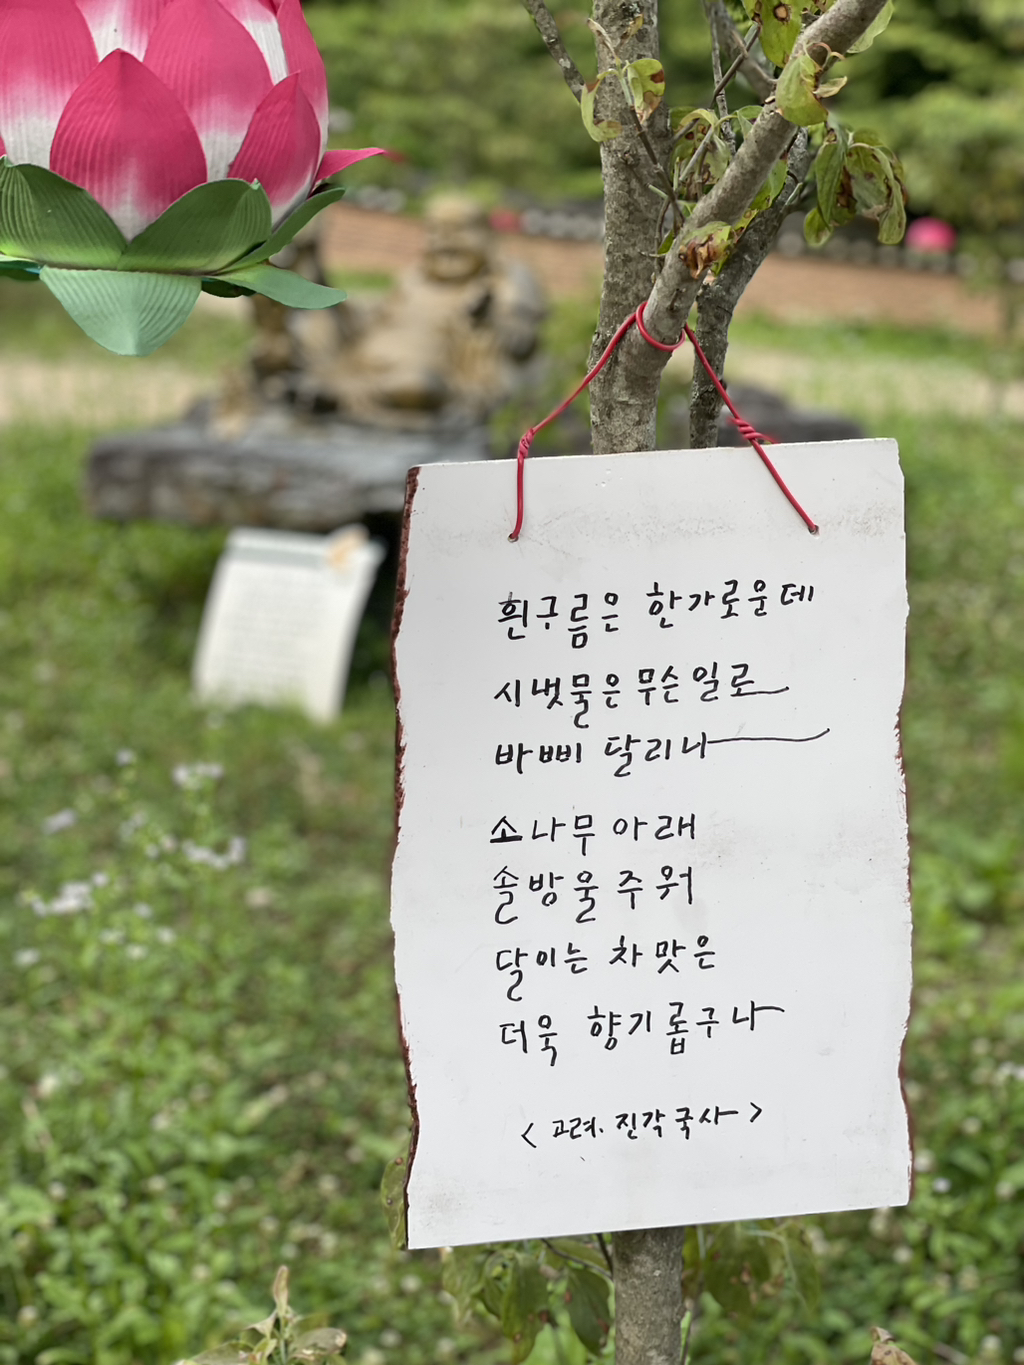 흰구름은 한가로운데
시냇물은 무슨일로
바삐 달리나
소나무 아래
솔방울 주워
달이는 차 맛은
더욱 향기롭구나
< 고려. 진각국사 >